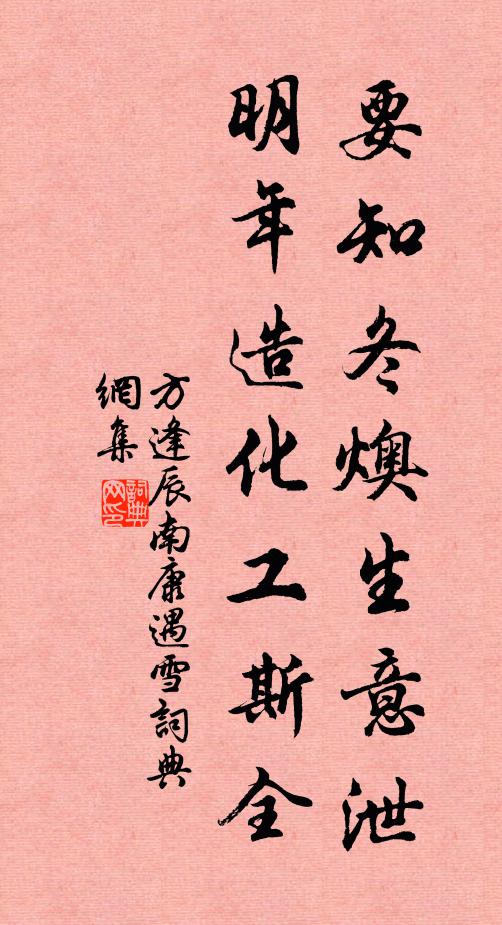 要知冬燠生意泄
明年造化工斯全
方逢辰南康遇雪詞典
網集
詞典
网印